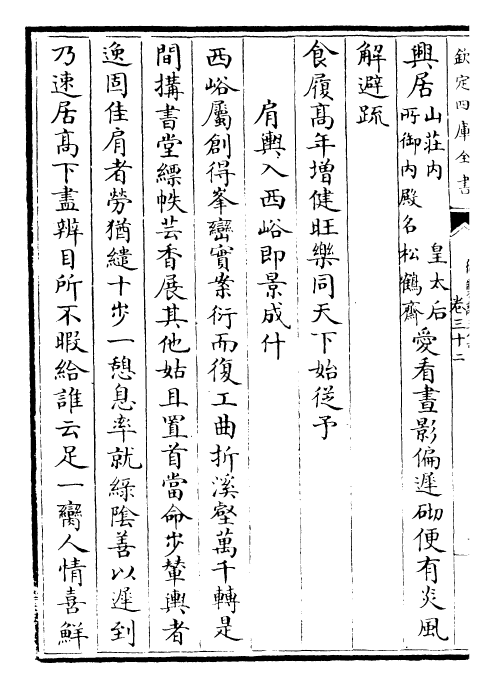 欽定四庫全書
卷三十二
興居山莊内 皇太后所御内殿名松鶴齋愛看晝影偏遲砌便有炎風
解避疏
食履髙年增健旺樂同天下始從予
肩輿入西峪即景成什
西峪屬創得峯巒實案衍而復工曲折溪壑萬千轉是
間搆書堂縹帙芸香展其他姑且置首當命步輦輿者
逸固佳肩者勞猶繾十步一憩息率就綠陰善以遲到
乃速居髙下盡辨目所不暇給誰云足一臠人情喜鮮